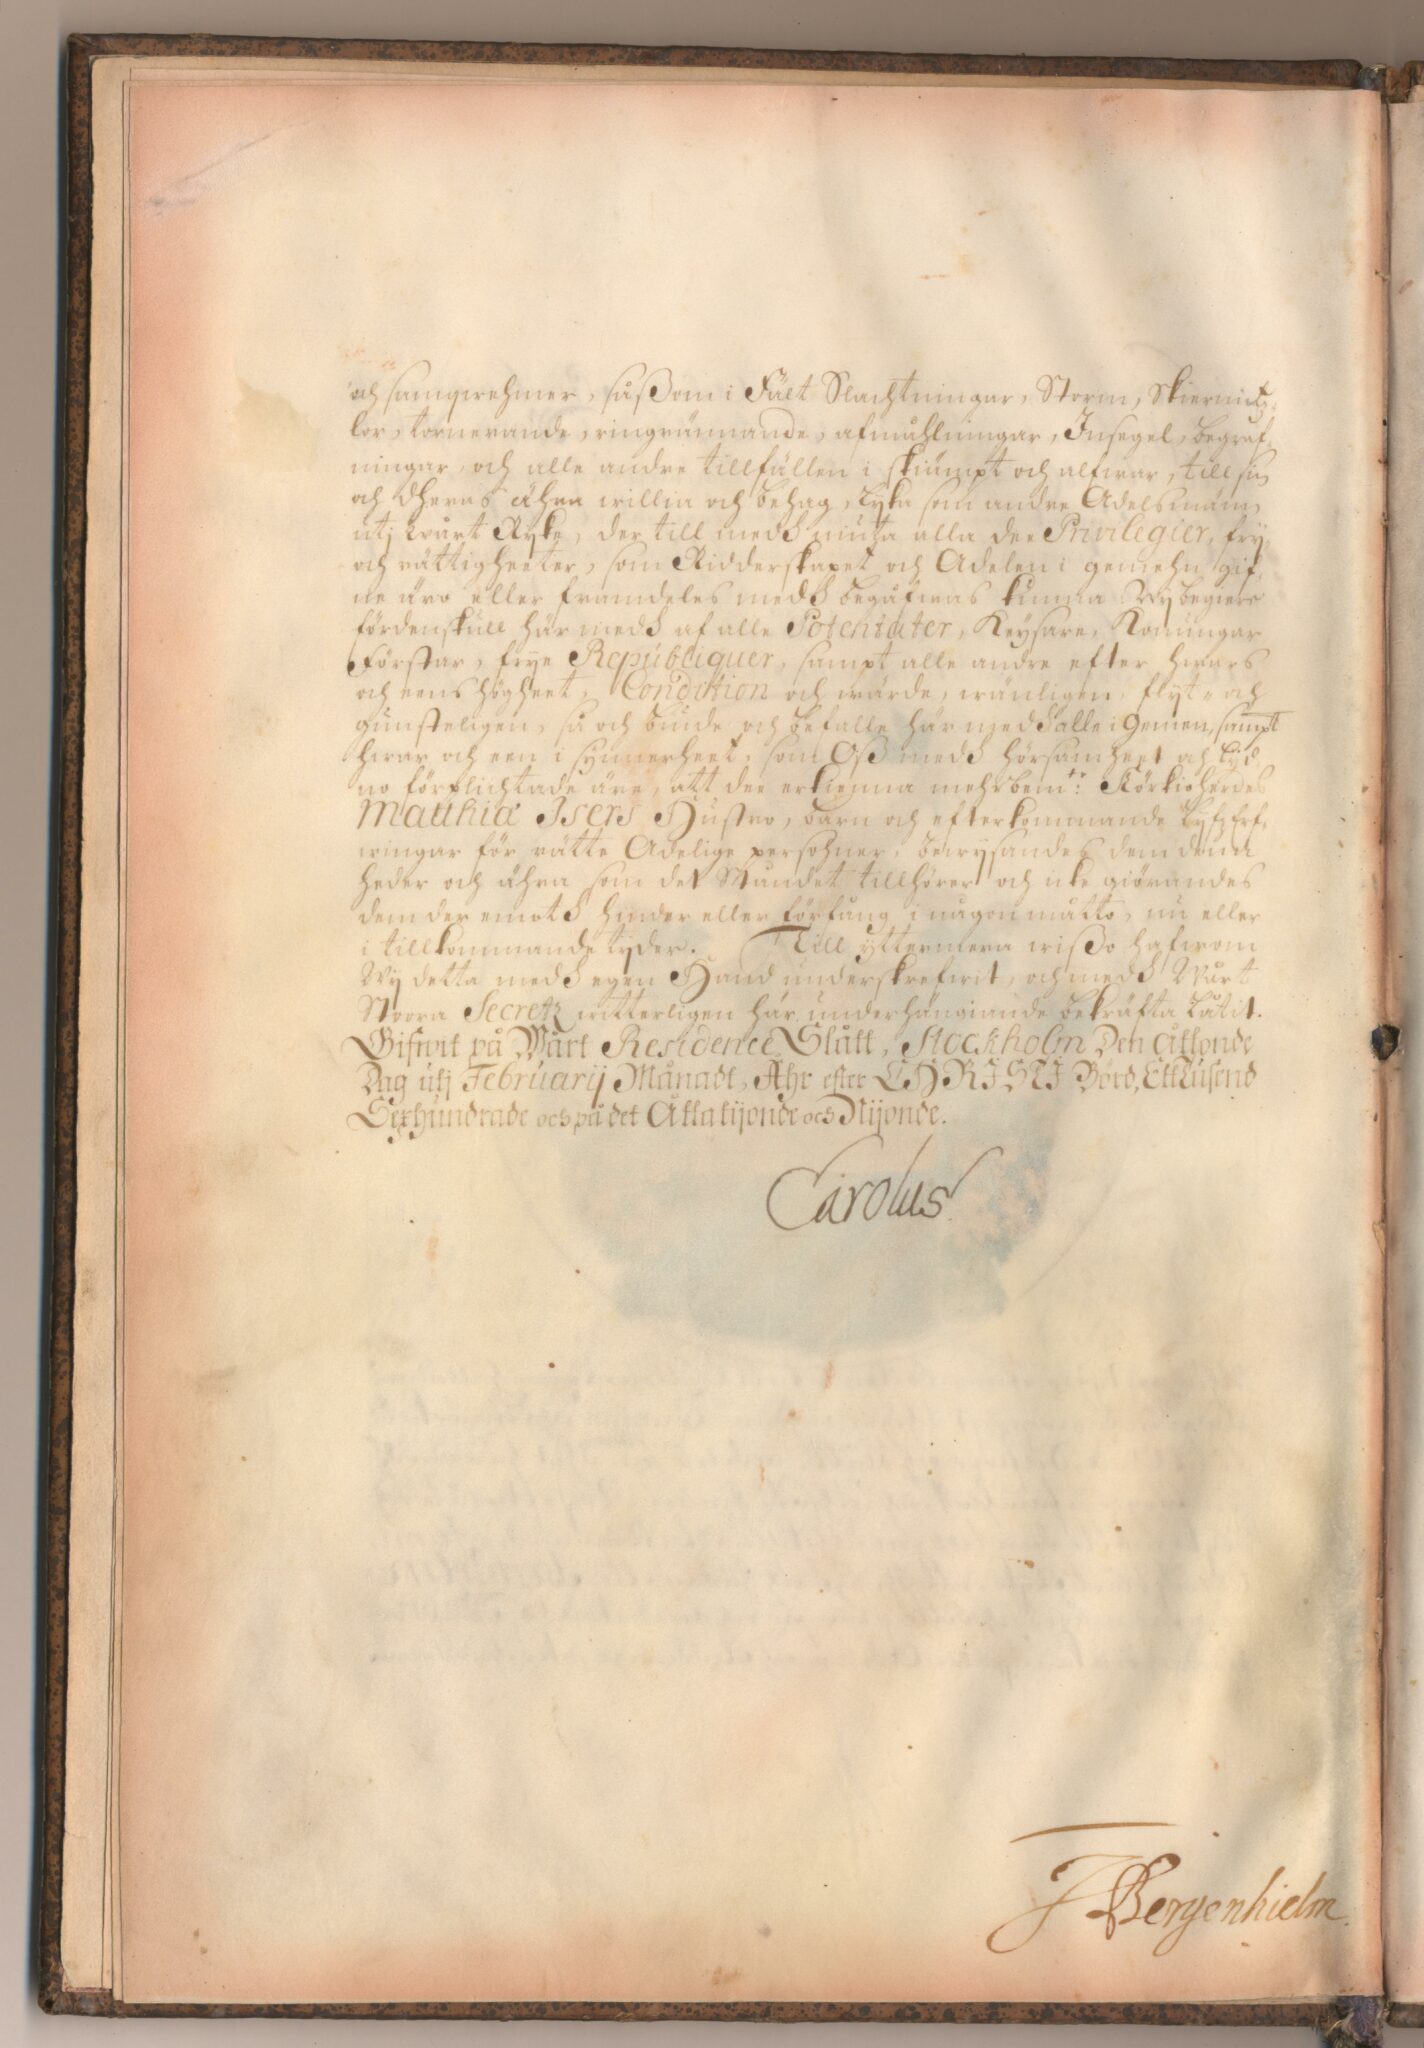 och sampqwehmer, såßom i Fält Slachtningar, Storm, Skiermitz-
lor, tornerande, ringrännande, afmåhlningar, Insegel, begraf-
ningar, och alle andre tillfällen i skiämpt och alfwar, till sin
och dheras ähra willia och behag, lyka som andre Adelsmän,
utj wårt Ryke, der till medh niuta alla dee Privilegier, fry-
och rättigheeter, som Ridderskapet och Adelen i gemehn gif-
ne äro eller framdeles medh begåfwas kunna Wy begiere
fördenskull här medh af alle Potentater, Keysare, Konungar
Förstar, frye Republiquer, sampt alle andre efter hwars
och eens högheet, Condition och wärde, wänligen, flyt- och
gunsteligen, så och biude och befalle här medh alle i gemen, sampt
hwar och een i synnerheet, som Oß medh hörsamheet och lyd-
no förplichtade äre, att dee erkienna mehrbem:te Körkioherdes
Matthiæ Isers Hustro, barn och efterkommande Lyfz Erf-
wingar för rätte Adelige persohner, bewysandes dem denn
heder och ähra som det Ståndet tillhörer och icke giörandes
dem der emoth hinder eller förfång i någon måtto, nu eller
i tillkommande tyder. Till yttermera wißo hafwom
Wy detta medh egen Hand underskrefwit, och medh Wårt
Stoora Secretz witterligen här underhängiande bekräfta låtit.
Gifwit på Wårt Residence Slått, Stockholm Den Åttonde
Dag utj Februarij Månadt, Åhr efter CHRISTI Börd, Ett Tusend
Sexhundrade och på det Åttatijonde och Nijonde.
Carolus
J Bergenhielm